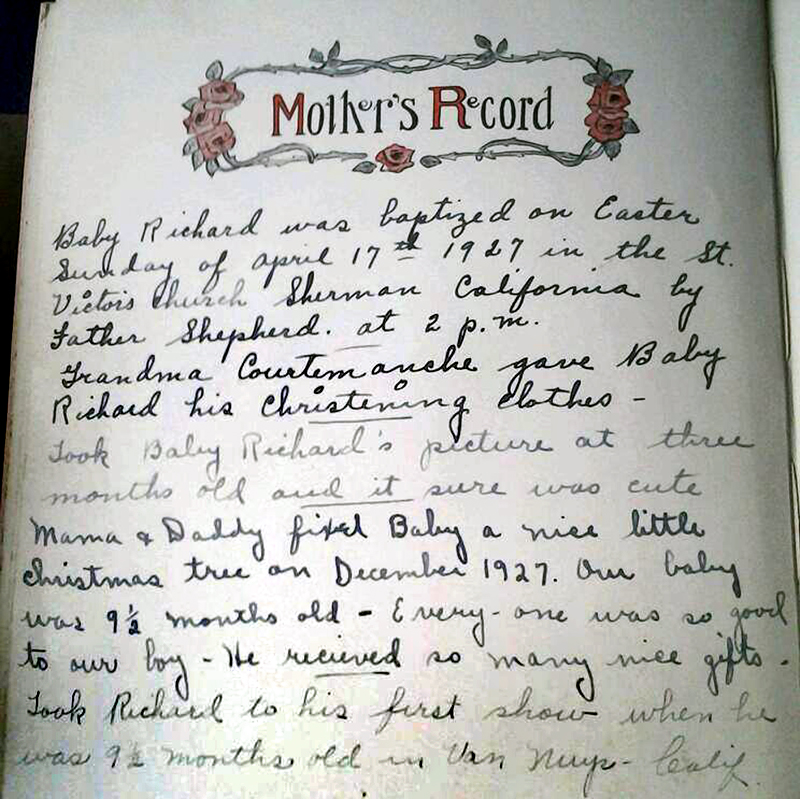 Mother's Record
Baby Richard was baptized on Easter
Sunday of april 17th 1927 in the St.
Victors church Sherman California by
Father Shepherd. at 2 p.m.
Grandma Courtemanche gave Baby
Richard his christening clothes -
Took Baby Richard's picture at three
months old and it sure was cute
Mama & Daddy fixed Baby a nice little
christmas tree on December 1927. Our baby
was 9½ months old - Every-one was so good
to our boy - He recieved so many nice gifts -
Took Richard to his first show when he
was 9½ months old in Van Nuys - Calif.